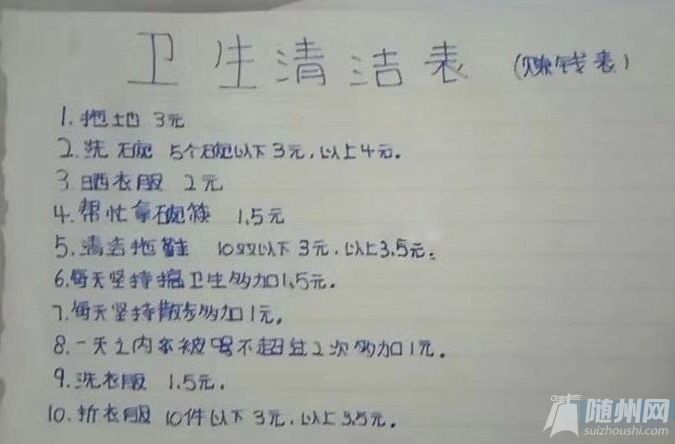 卫生清洁表 (赚钱表)
1. 拖地 3元
2. 洗碗 5个碗以下3元,以上4元。
3. 晒衣服 2元
4. 帮忙拿碗筷 1.5元
5. 清洁拖鞋 10双以下3元,以上3.5元。
6. 每天坚持搞卫生多加1.5元。
7. 每天坚持散步多加1元。
8. 一天之内不被骂不超过2次多加1元。
9. 洗衣服 1.5元.
10. 折衣服 10件以下3元,以上3.5元。
随州网
suizhoushi.com